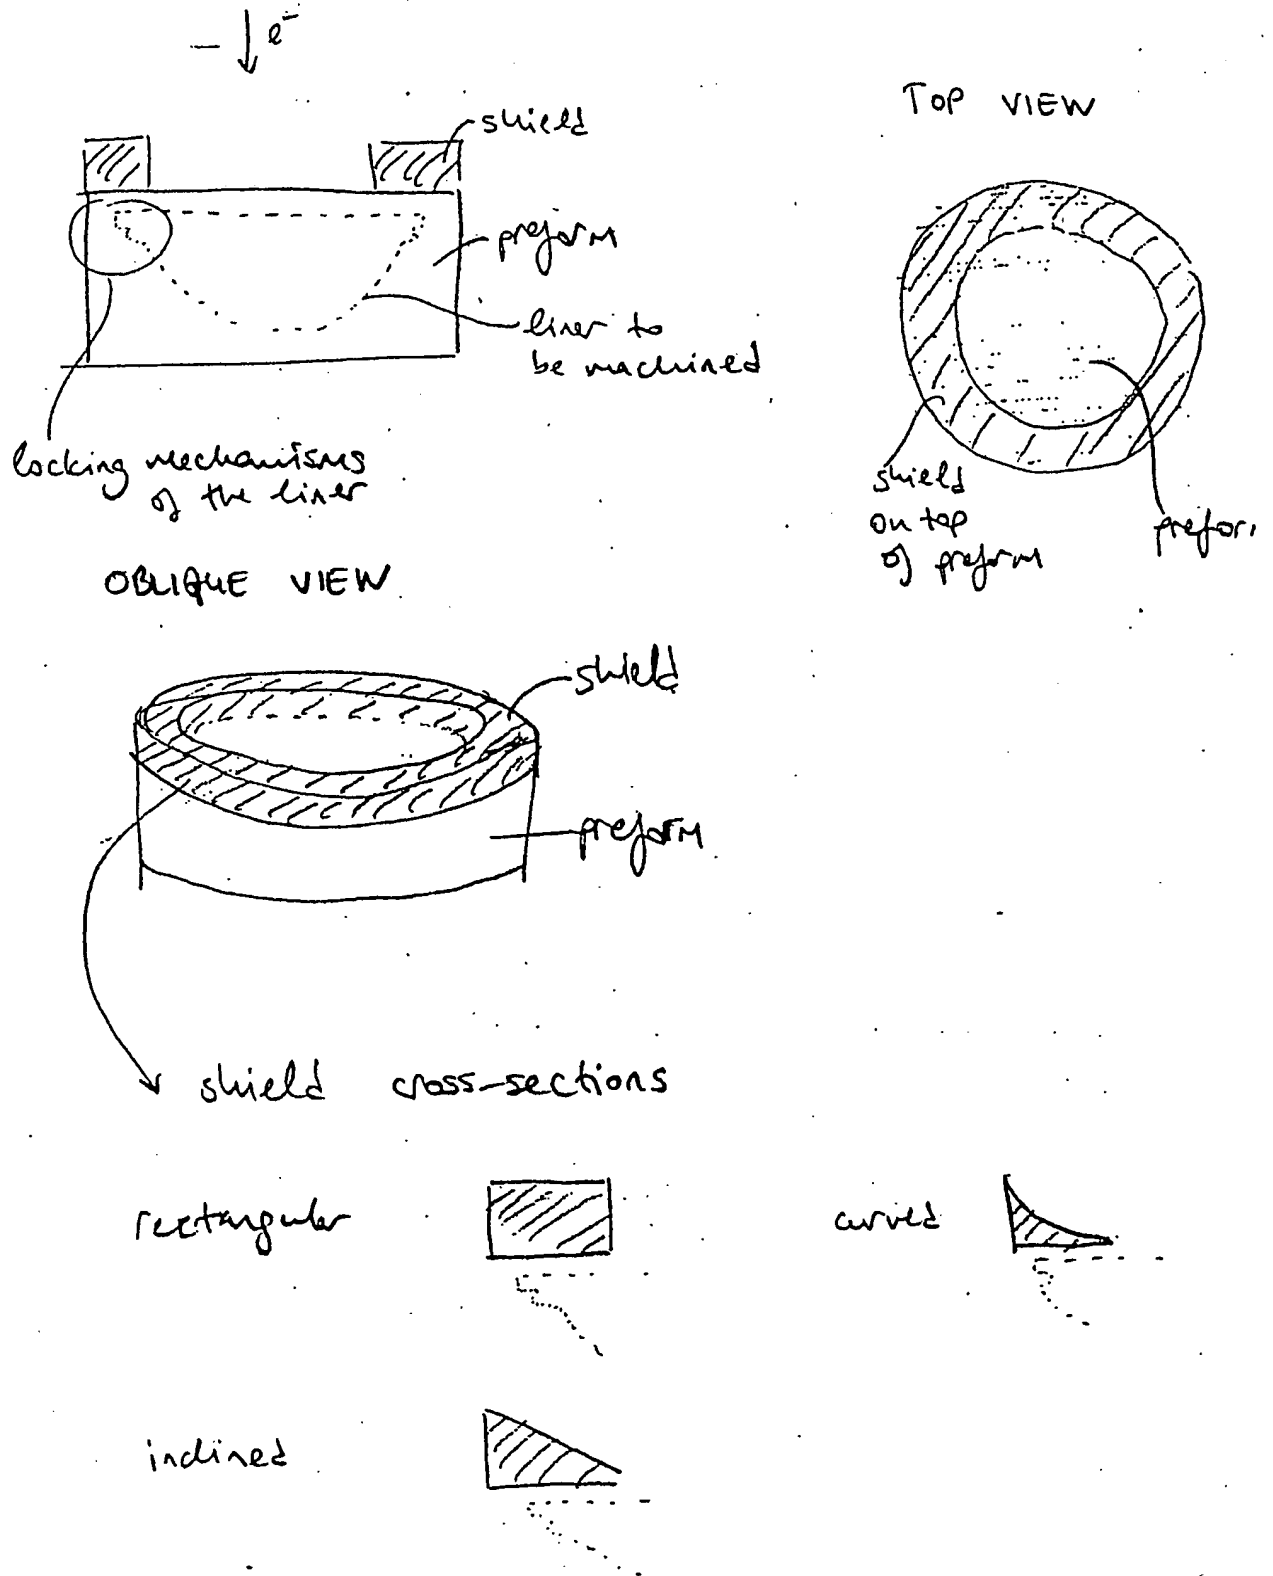 — e⁻
TOP VIEW
shield
preform
liner to
be machined
locking mechanisms
of the liner
shield
on top
of preform
prefor
OBLIQUE VIEW
shield
preform
shield cross-sections
rectangular
curved
inclined